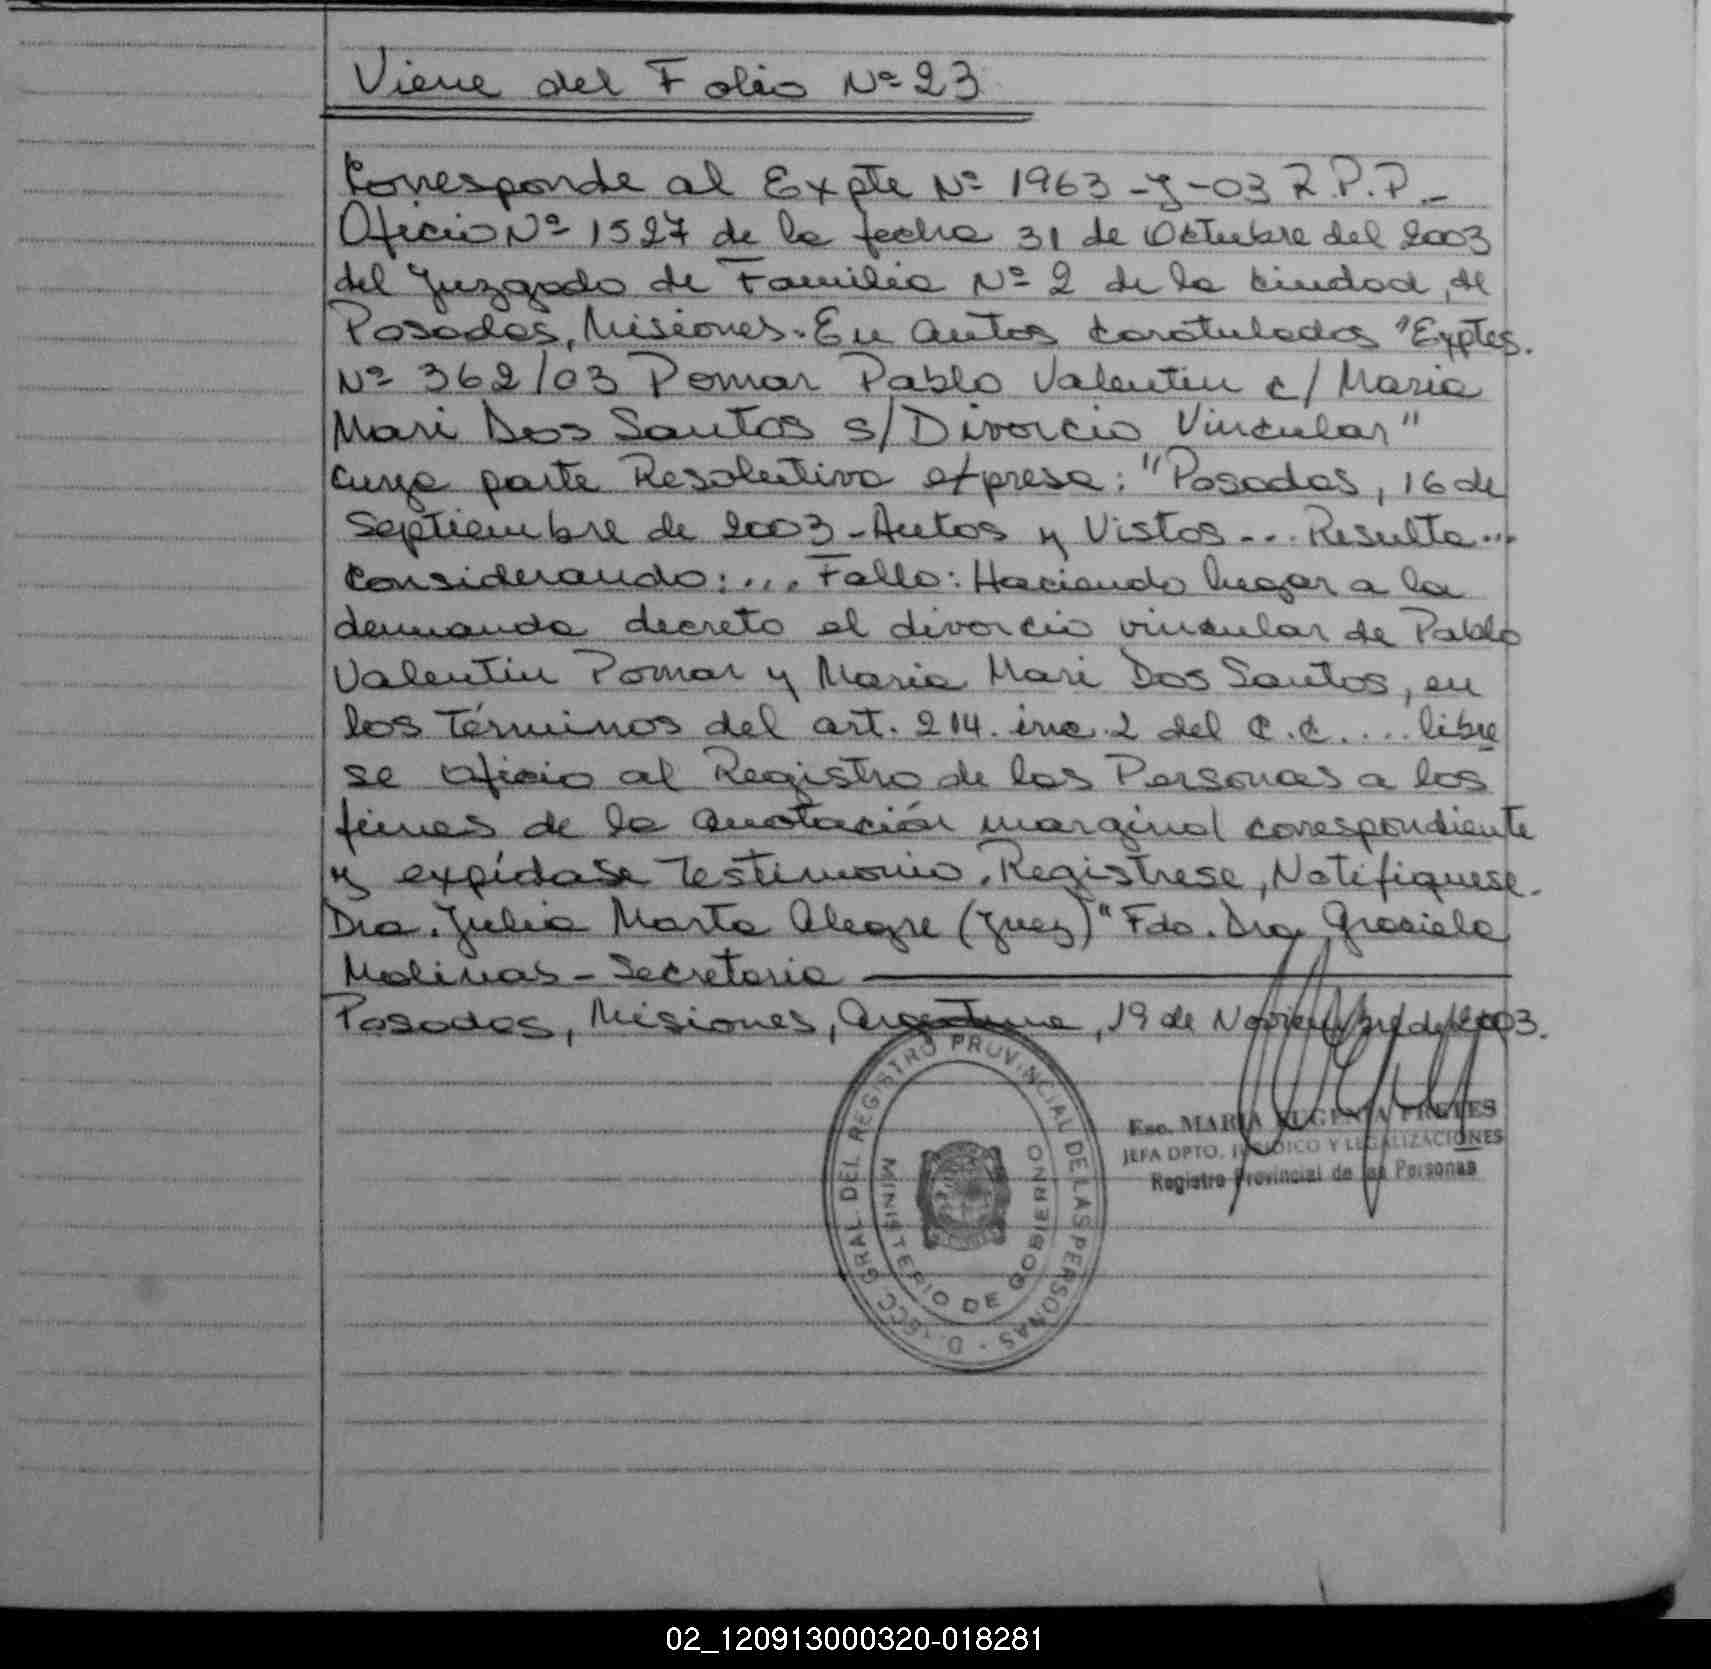 Viene del Folio Nº 23
Corresponde al Expte Nº 1963-J-03 R.P.P.-
Oficio Nº 1527 de la fecha 31 de Octubre del 2003
del Juzgado de Familia Nº 2 de la ciudad, de
Posadas, Misiones. En autos caratulados "Exptes.
Nº 362/03 Pomar Pablo Valentin c/ Maria
Mari Dos Santos s/ Divorcio Vincular"
cuya parte Resolutiva expresa: "Posadas, 16 de
Septiembre de 2003 - Autos y Vistos ... Resulta ...
Considerando: ... Fallo: Haciendo lugar a la
demanda decreto el divorcio vincular de Pablo
Valentin Pomar y Maria Mari Dos Santos, en
los Términos del art. 214. inc. 2 del C.C. .... libre
se oficio al Registro de las Personas a los
fines de la anotación marginal correspondiente
y expídase Testimonio. Registrese, Notifiquese.
Dra. Julia Marta Alegre (Juez)" Fdo. Dra Graciela
Molinas - Secretaria
Posadas, Misiones, Argentina, 19 de Noviembre de 2003.
Esc. MARIA EUGENIA FRETES
JEFA DPTO. JURIDICO Y LEGALIZACIONES
Registro Provincial de las Personas
DIRECC. GRAL. DEL REGISTRO PROVINCIAL DE LAS PERSONAS -
MINISTERIO DE GOBIERNO
02_120913000320-018281